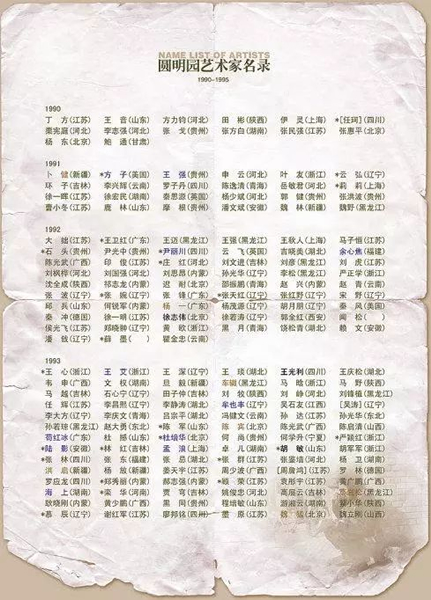 NAME LIST OF ARTISTS
圆明园艺术家名录
1990-1995
1990
丁 方(江苏) 王 音(山东) 方力钧(河北) 田 彬(陕西) 伊 灵(上海) *[任砢](四川)
栗宪庭(河北) 李志强(河北) 张 戈(贵州) 张方白(湖南) 张民强(江苏) 张惠平(北京)
杨 东(北京) 鲍 通(甘肃)
1991
卜 健(新疆) *方 子(美国) 王 强(贵州) 申 云(河北) 叶 友(浙江) *云 弘(辽宁)
环 子(吉林) 李兴辉(云南) 罗子丹(四川) 陈逸清(青海) 岳敏君(河北) *莉 莉(上海)
徐一晖(江苏) 徐宏民(湖南) 秦思源(英国) 杨少斌(河北) 郭 健(贵州) 张洪波(贵州)
曹小冬(江苏) 鹿 林(山东) 摩 根(贵州) 潘文斌(安徽) 魏 林(新疆) 魏野(黑龙江)
1992
大 础(江苏) *王卫红(广东) 王迈(黑龙江) 王强(黑龙江) 王秋人(上海) 马子恒(江苏)
*石 头(贵州) 尹光中(贵州) *尹丽川(四川) 云 飞(英国) 吉晓英(湖北) 余心焦(福建)
陈光武(广西) 印 俊(江苏) *庄 红(河北) 刘文进(吉林) 刘彦(黑龙江) 刘 虎(江苏)
刘枫桦(河北) 刘国强(河北) 刘思昂(内蒙) 孙光华(辽宁) 李松(黑龙江) 严正学(浙江)
沈全成(陕西) 祁志龙(内蒙) 迟 耐(北京) 邵振鹏(山东) 赵 兴(内蒙) 赵 青(云南)
张 波(辽宁) *张 婉(辽宁) 张 锋(广东) *张天红(辽宁) 张红野(辽宁) 宋 野(辽宁)
邱 兵(山东) 何锐军(内蒙) 杨 一(广东) 杨茂源(辽宁) 胡月朋(辽宁) 秦 风(美国)
秦 冲(德国) 徐一明(江苏) 徐志伟(北京) 徐若涛(辽宁) 郭金红(西安) 闻 松( )
侯光飞(江苏) 郑晓翀(辽宁) 黄 欧(浙江) 黑 月(青海) 饶松青(湖北) 赖 文(安徽)
潘 铉(辽宁) *薛 墨( ) 瞿金忠(云南)
1993
*王 心(浙江) 王 艾(浙江) 王 深(辽宁) 王 琰(湖北) 王光利(四川) 王庆松(湖北)
韦 申(广西) 文 权(湖南) 旦 毅(新疆) 车磁(黑龙江) 马 晗(浙江) 马 野(陕西)
马 越(吉林) 石心宁(辽宁) 田子仲(吉林) 刘 牧(陕西) 刘 峥(河北) 刘锋植(黑龙江)
任 辉(江苏) 李易熙(辽宁) 李静涛(湖北) 牟也丰(辽宁) 吴石友(江西) [吴涛](辽宁)
李大方(辽宁) 李庆文(青海) 吕宗平(湖北) 冯健文(云南) 孙 达(江苏) 孙光华(东北)
孙若琮(黑龙江) 赵大勇(东北) *陈 军(山东) 陈 宾(北京) 陈光武(广西) 陈启清(山西)
荀红冰(广东) 杜 撼(山东) *杜培华(北京) 何 尚(贵州) 何学升(宁夏) *严颖红(浙江)
*陆 影(安徽) *林 红(吉林) 孟 浪(上海) 卓 凡(湖南) *胡 敏(山东) 胡军军(浙江)
*张 林(四川) 张 东(福建) 张 念(湖北) *张 群(湖南) 张里培(河北) 胡 卫(湖南)
洪 启(新疆) 杨 放(新疆) 姜天平(江苏) 周少波(广西) [周鹄鸿](江苏) 罗 林(德国)
罗应龙(四川) *郑秀丽(内蒙) 郝志强(内蒙) *顾 荣(江苏) 袁彤宇(江苏) 黄广鹏(广西)
海 上(湖南) *栾 华(河南) 贾 穹(吉林) 姚俊忠(河北) 高眉云(吉林)
耿晓刚(内蒙) 黄少鹏(广西) *黑 同(贵州) 程培敏(山东) 游湘云(湖南)
*慕 辰(辽宁) 谢红军(江苏) 鄢邦铭(四川) 墨 原(江苏) 魏 猛(北京) 魏立刚(山西)